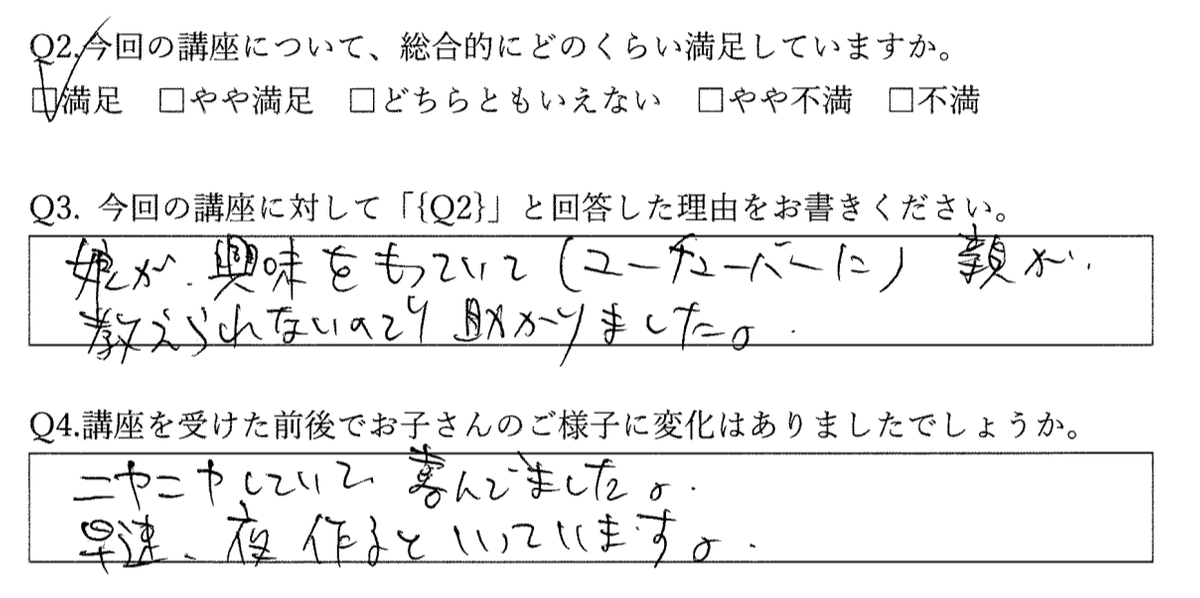 Q2.今回の講座について、総合的にどのくらい満足していますか。
☑満足　□やや満足　□どちらともいえない　□やや不満　□不満
Q3. 今回の講座に対して「{Q2}」と回答した理由をお書きください。
娘が、興味をもっていて(ユーチューバーに)親が、
教えられないので助かりました。
Q4.講座を受けた前後でお子さんのご様子に変化はありましたでしょうか。
ニヤニヤしていて、喜んでました。
早速、夜作るといっています。